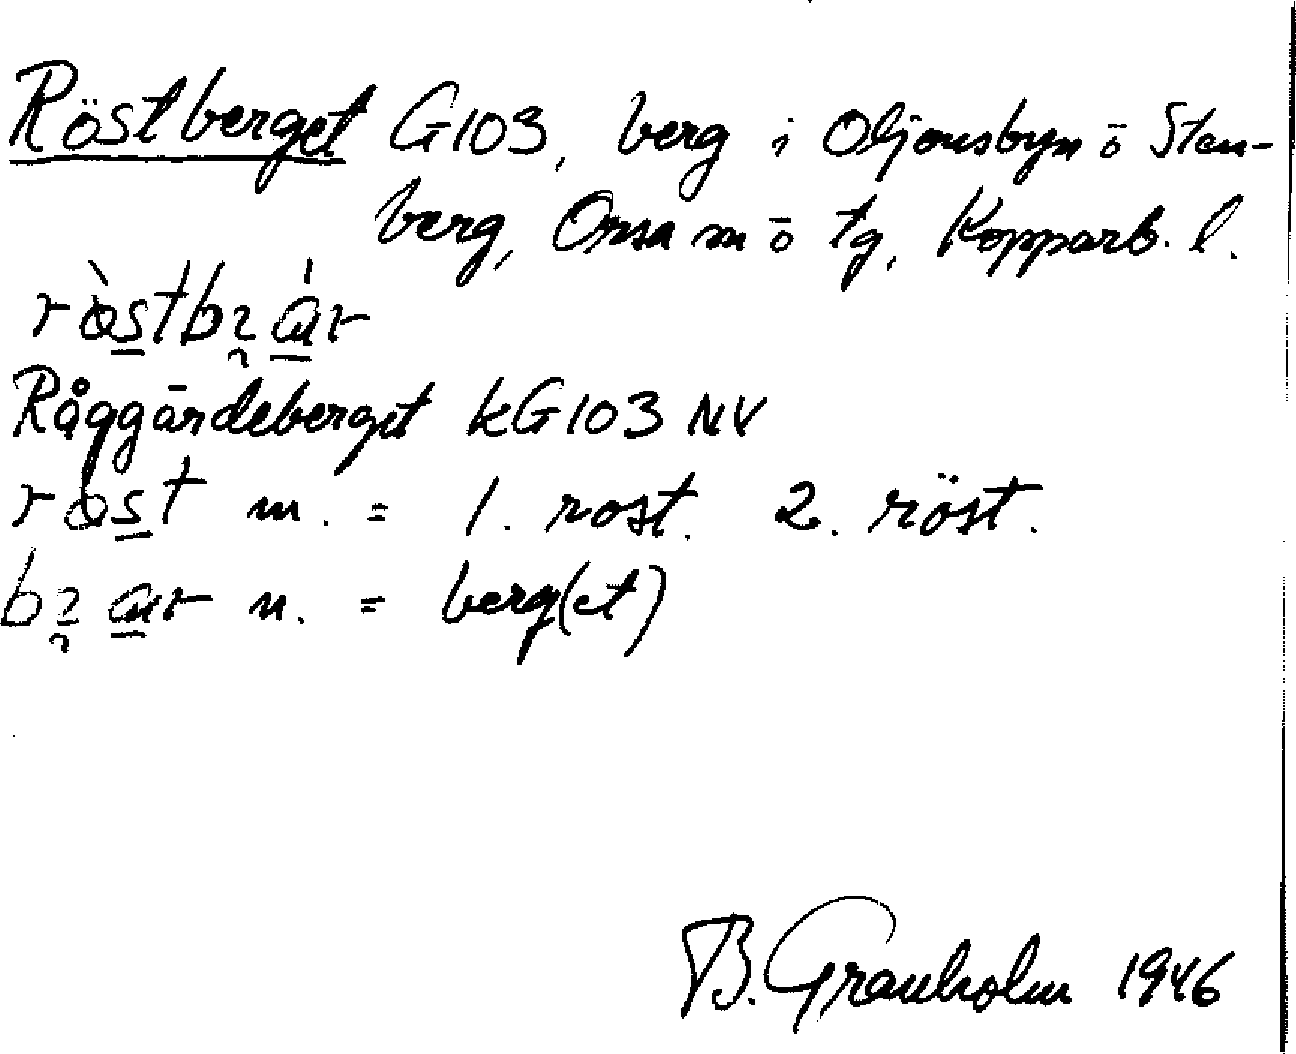 Röstberget G103, berg i Oljonsbyn o Sten-
berg, Orsa sn o tg, Kopparb. l.
Råggärdeberget kG103 NV
m. = 1. rost. 2. röst.
n. = berg(et)
B. Granholm 1946